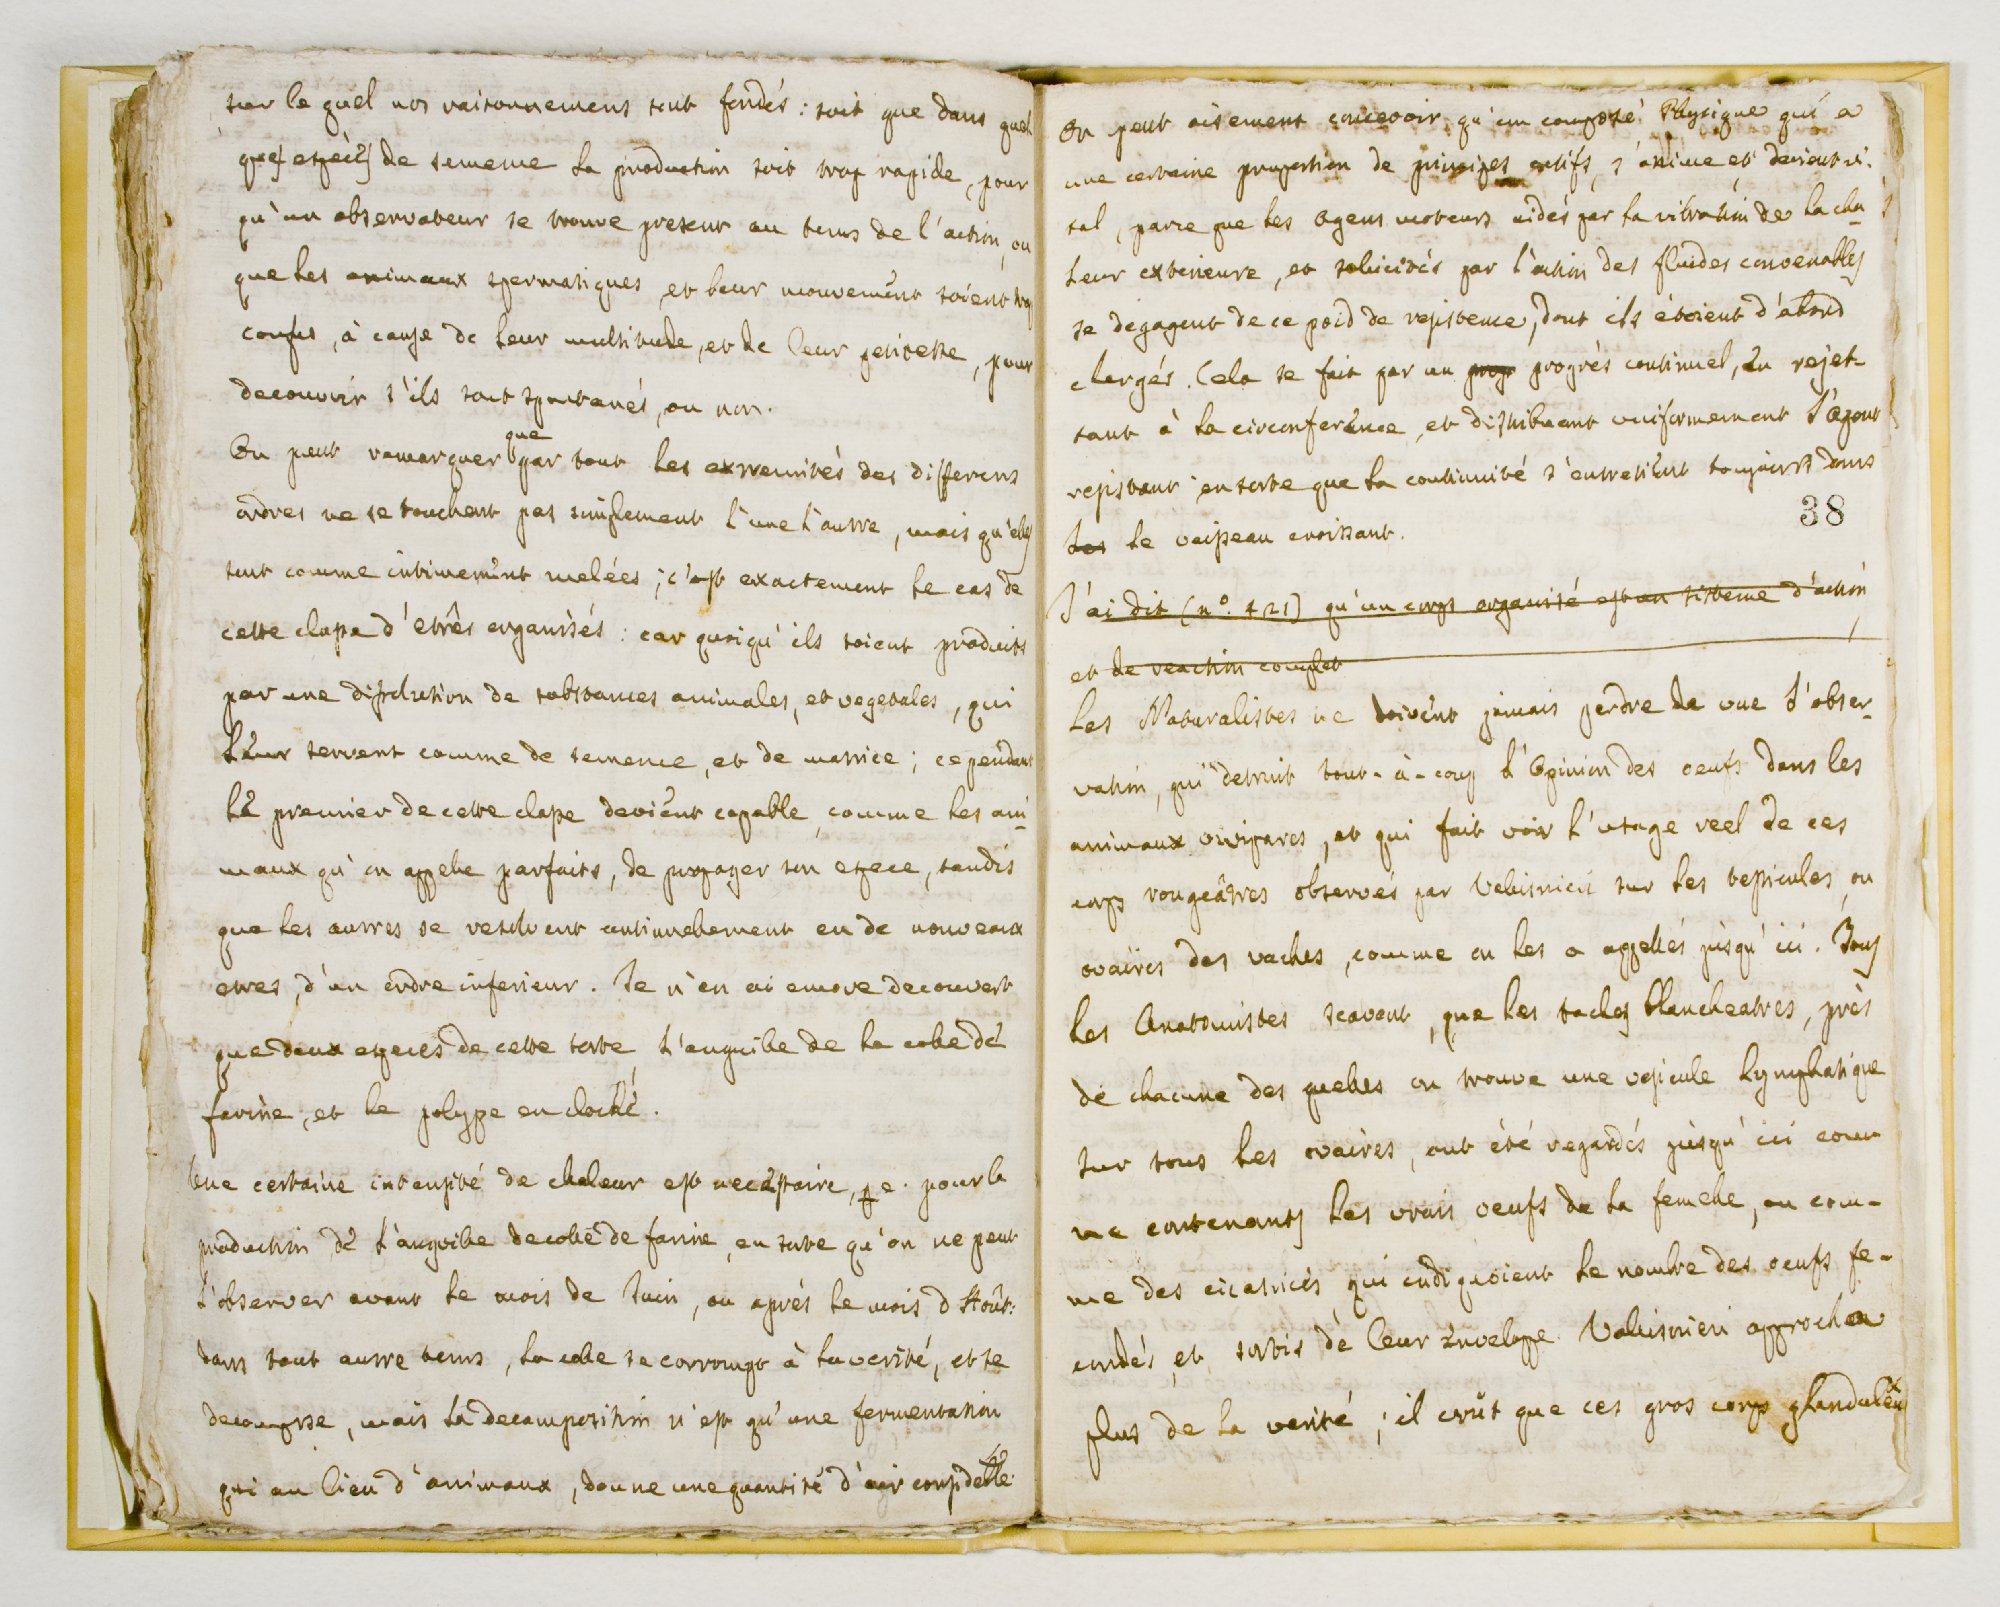 sur le quel nos raisonnemens sont fondés : soit que dans quel
ques especes de semence la production soit trop rapide, pour
qu'un observateur se trouve present au tems de l'action, ou
que les animaux spermatiques et leur mouvement soient trop
confus, à cause de leur multitude, et de leur petitesse, pour
decouvrir s'ils sont spontanés, ou non.
On peut remarquer que par tout les extremités des differens
ordres ne se touchent pas simplement l'une l'autre, mais qu'elles
sont comme intimement melées ; c'est exactement le cas de
cette classe d'etrês organisés : car quoiqu'ils soient produits
par une dissolution de substances animales, et vegetales, qui
leur servent comme de semence, et de matrice ; cependant
le premier de cette classe devient capable, comme les ani-
maux qu'on appelle parfaits, de propager son espece, tandis
que les autres se resolvent continuellement en de nouveaux
etres, d'un ordre inferieur. Je n'en ai encore decouvert
que deux especes de cette sorte l'anguille de la colle de
farine, et le polype en cloche.
Une certaine intensité de chaleur est necessaire, p. e. pour la
production de l'anguille de colle de farine, en sorte qu'on ne peut
l'observer avant le mois de Juin, ou aprés le mois d'Août :
dans tout autre tems, la colle se corrompt à la verité, et se
decompose, mais la decomposition n'est qu'une fermentation
qui au lieu d'animaux, donne une quantité d'air considerable.
On peut aisement concevoir qu'un composé Physique qui a
une certaine proportion de principes actifs, s'anime et devient vi-
tal, parce que les Agens moteurs aidés par la vibration de la cha-
leur exterieure, et solicités par l'action des fluides convenables
se degagent de ce poid de resistence, dont ils étoient d'abord
chargés. Cela se fait par un progr progrès continuel, en rejet-
tant à la circonference, et distribuant uniformement l'Agent
resistant en sorte que la continuité s'entretient toujours dans
38
les le vaisseau croissant.
J'ai dit (n.° 421) qu'un corps organisé est un sisteme d'action,
et de reaction complet
Les Naturalistes ne doivent jamais perdre de vue l'obser-
vation, qui detruit tout-à-coup l'Opinion des oeufs dans les
animaux vivipares, et qui fait voir l'usage reel de ces
corps rougeâtres observés par Valisnieri sur les testicules, ou
ovaires des vaches, comme on les a appellés jusqu'ici. Tous
les Anatomistes scavent, que les taches blancheatres, près
de chacune des quelles on trouve une vesicule lymphatique
sur tous les ovaires, ont été regardés jusqu'ici com-
me contenants les vrais oeufs de la femelle, ou com-
me des cicatricès qui indiquoient le nombre des oeufs fe-
condés, et sortis de leur envelope. Valisnieri approcha
plus de la verité ; il crût que ces gros corps glanduleux